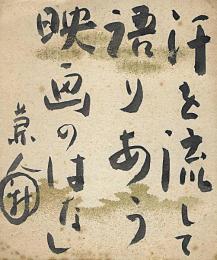 汗を流して
語りあう
映画のはなし